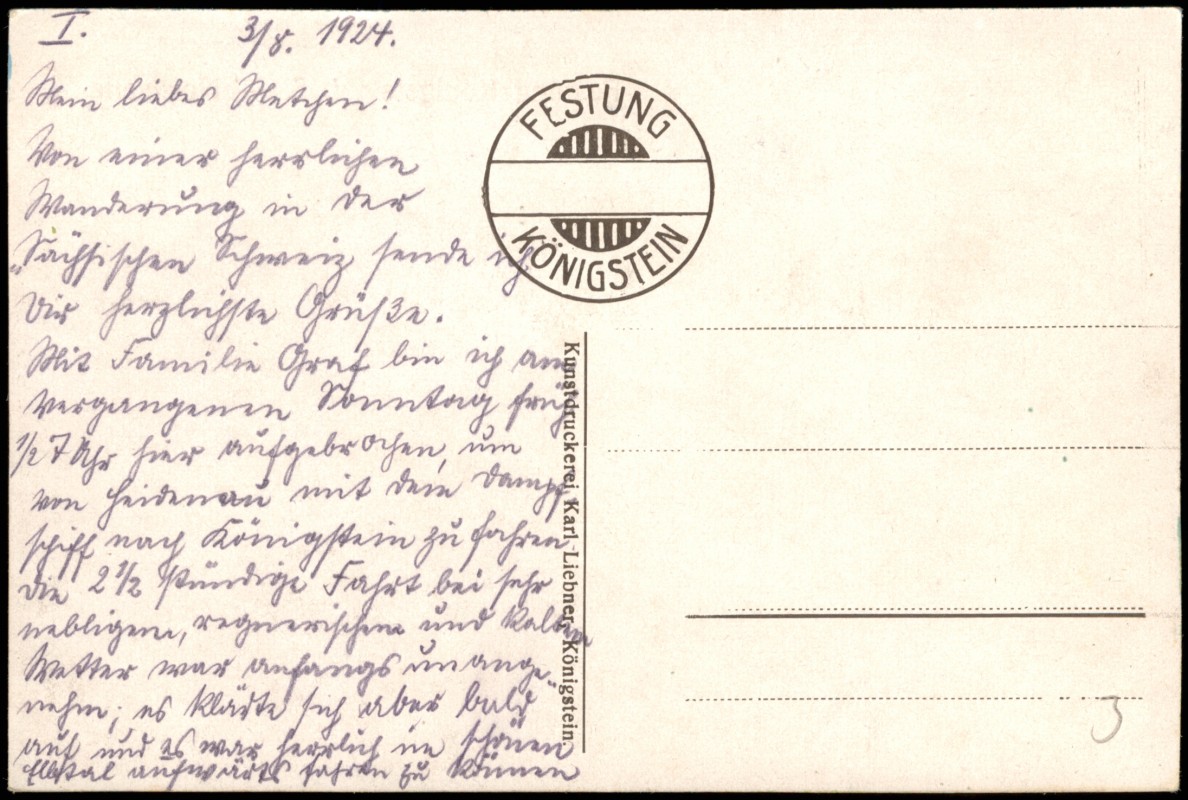 I. 3/8. 1924.
Mein liebes Metchen!
Von einer herrlichen
Wanderung in der
Sächsischen Schweiz sende ich
Dir herzlichste Grüße.
Mit Familie Graf bin ich am
vergangenen Sonntag früh
1/2 7 Uhr hier aufgebrochen, um
von Heidenau mit dem Dampf
schiff nach Königstein zu fahren,
die 2 1/2 stündige Fahrt bei sehr
nebligem, regnerischem und kaltem
Wetter war anfangs unange-
nehm; es klärte sich aber bald
auf und es war herrlich im schönen
Elbtal aufwärts fahren zu können
FESTUNG
KÖNIGSTEIN
Kunstdruckerei Karl Liebner, Königstein.
3